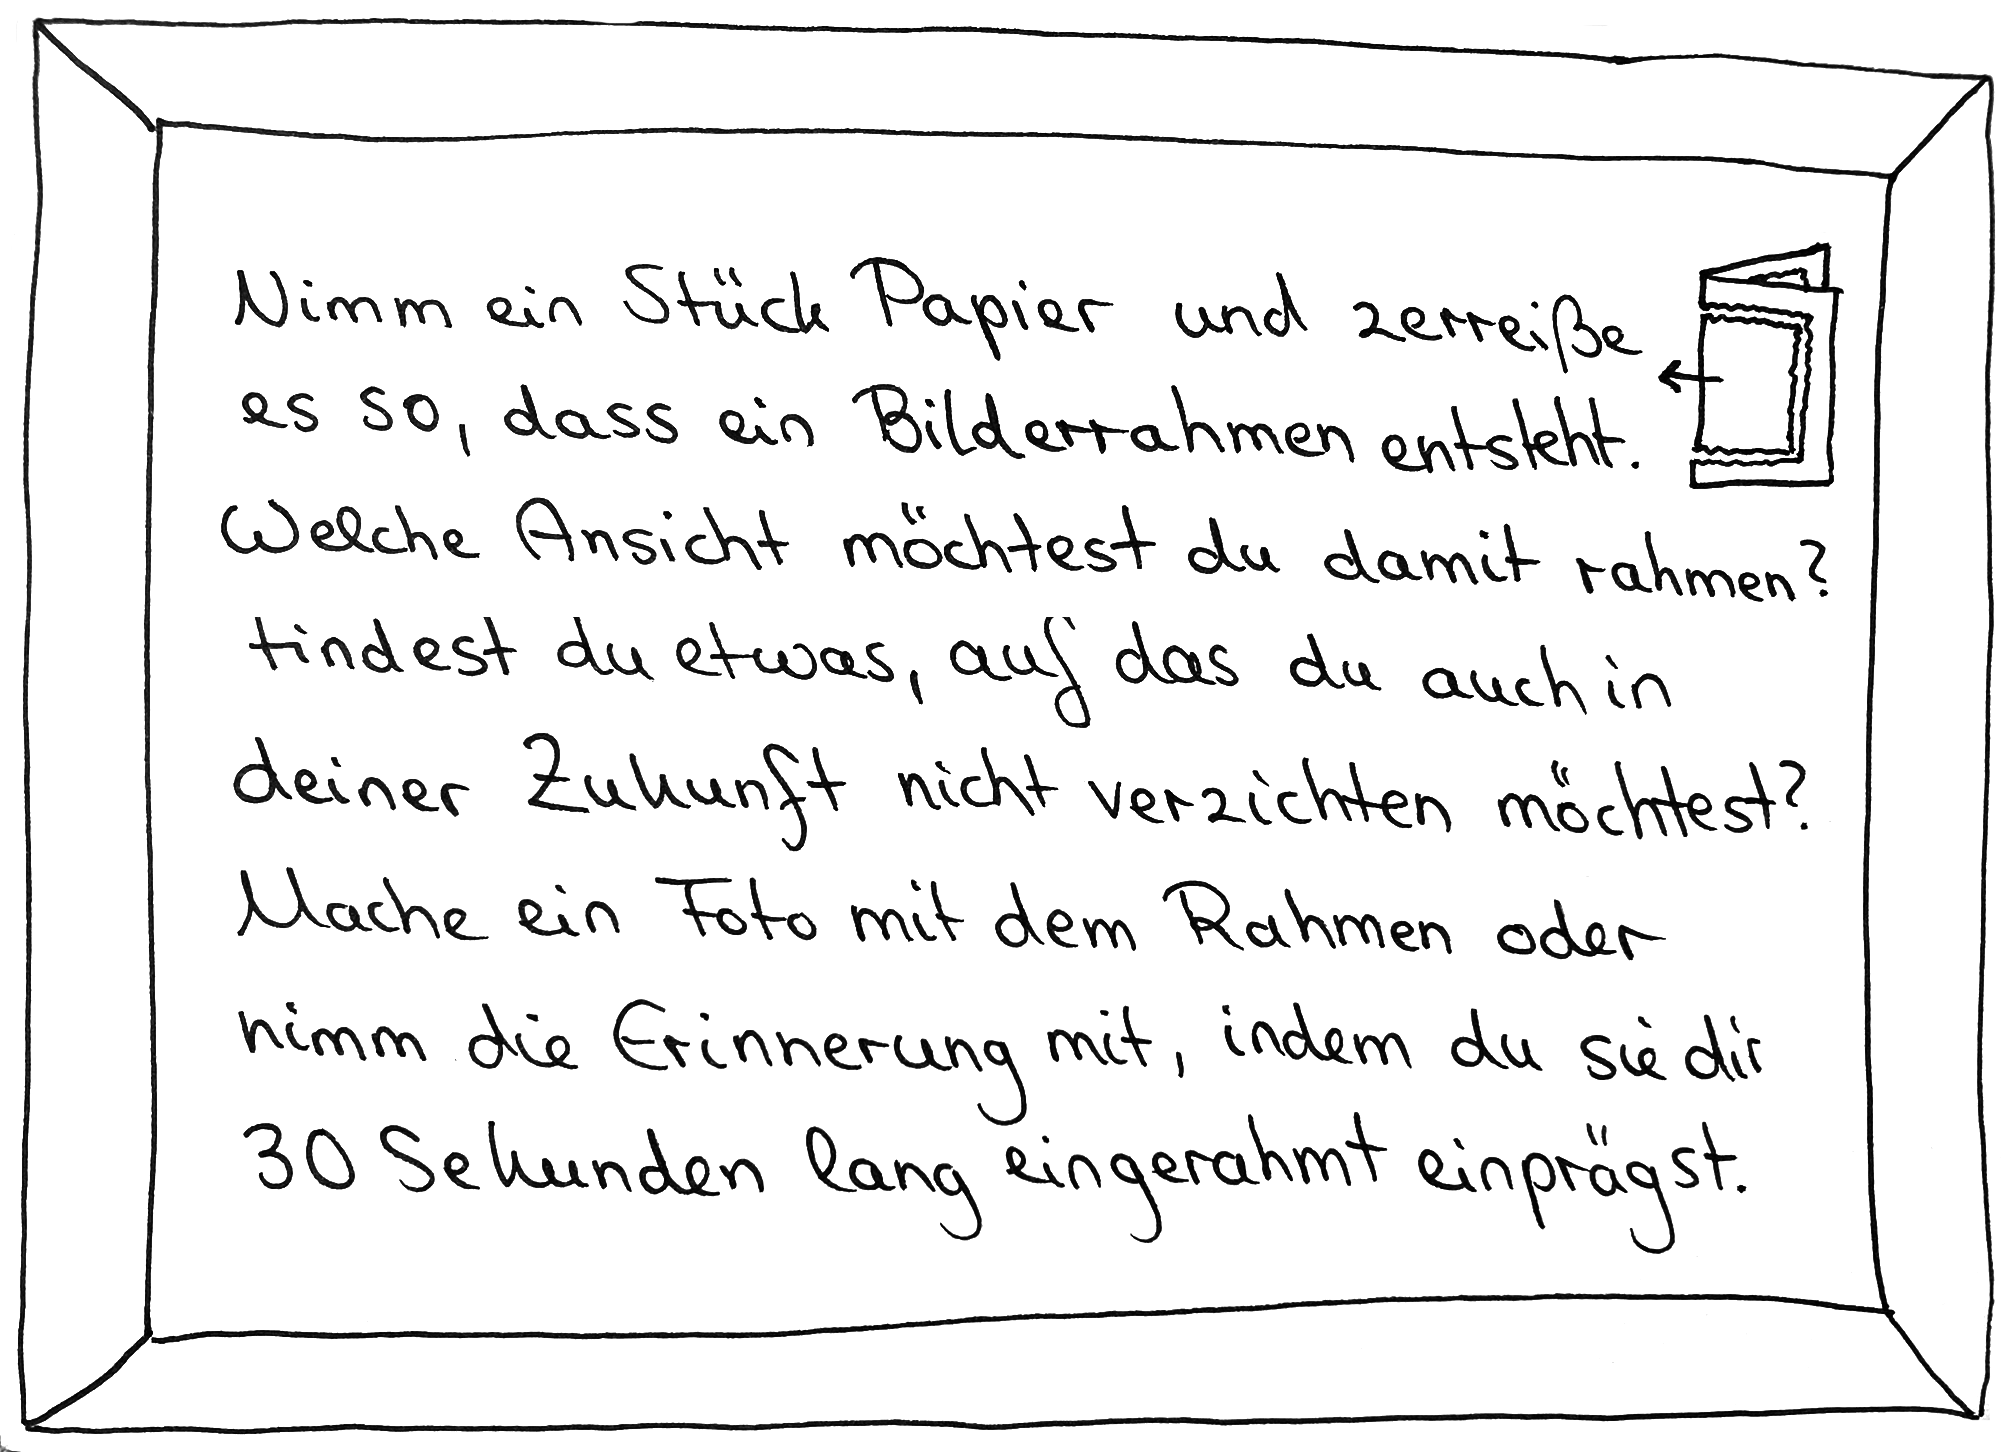 Nimm ein Stück Papier und zerreiße
es so, dass ein Bilderrahmen entsteht.
Welche Ansicht möchtest du damit rahmen?
Findest du etwas, auf das du auch in
deiner Zukunft nicht verzichten möchtest?
Mache ein Foto mit dem Rahmen oder
nimm die Erinnerung mit, indem du sie dir
30 Sekunden lang eingerahmt einprägst.